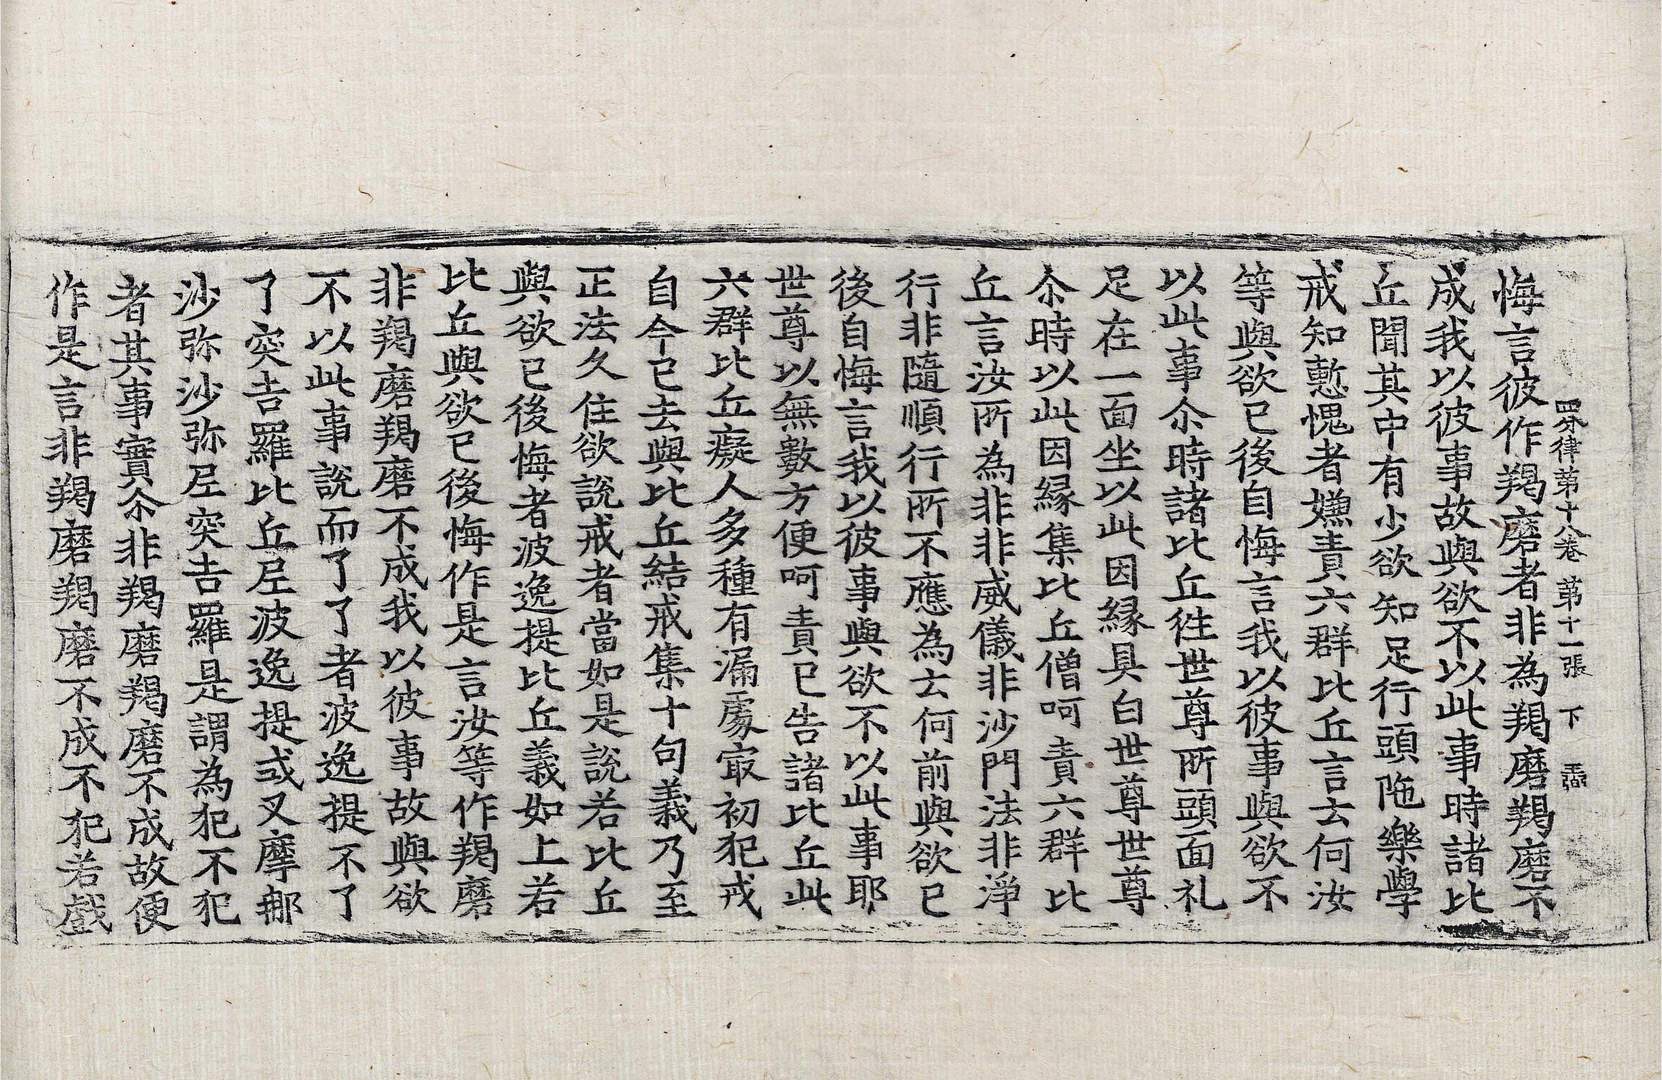 四分律苐十八卷 苐十一張 下
悔言彼作羯磨者非為羯磨羯磨不
成我以彼事故與欲不以此事時諸比
丘聞其中有少欲知足行頭陁樂學
戒知慙愧者嫌責六群比丘言云何汝
等與欲已後自悔言我以彼事與欲不
以此事尒時諸比丘徃世尊所頭面礼
足在一面坐以此因縁具白世尊世尊
尒時以此因縁集比丘僧呵責六群比
丘言汝所為非非威儀非沙門法非淨
行非隨順行所不應為云何前與欲已
後自悔言我以彼事與欲不以此事耶
世尊以無數方便呵責已告諸比丘此
六群比丘癡人多種有漏處㝡初犯戒
自今已去與比丘結戒集十句義乃至
正法久住欲說戒者當如是說若比丘
與欲已後悔者波逸提比丘義如上若
比丘與欲已後悔作是言汝等作羯磨
非羯磨羯磨不成我以彼事故與欲
不以此事說而了了者波逸提不了
了突吉羅比丘尼波逸提式叉摩那
沙弥沙弥尼突吉羅是謂為犯不犯
者其事實尒非羯磨羯磨不成故便
作是言非羯磨羯磨不成不犯若戲